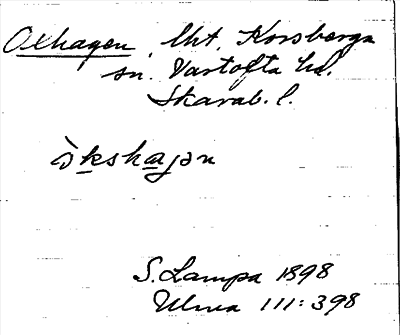 Oxhagen, lht, Korsberga
sn. Vartofta hd.
Skarab. l.
òkshajən
S. Lampa 1898
Ulma 111:398